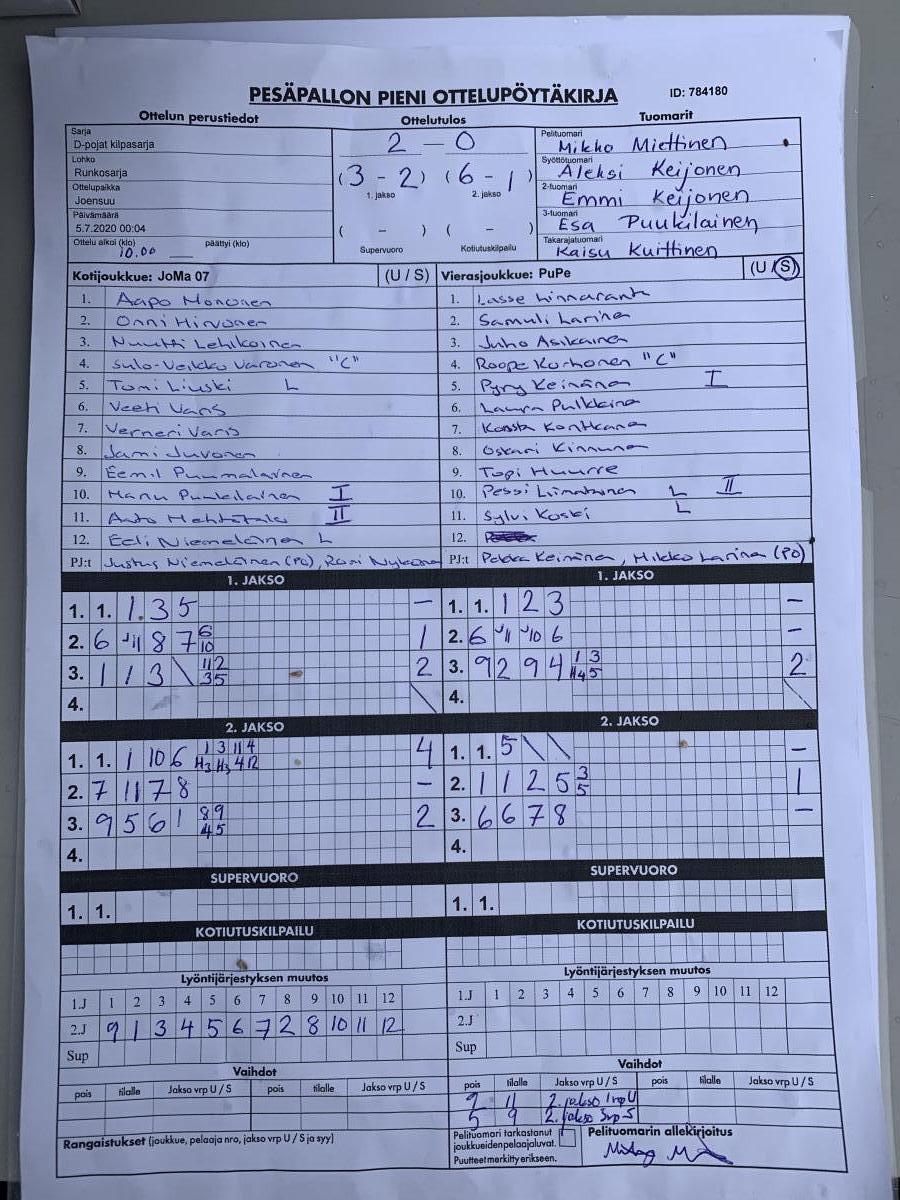 PESÄPALLON PIENI OTTELUPÖYTÄKIRJA ID: 784180
Ottelun perustiedot Ottelutulos Tuomarit
Sarja
D-pojat kilpasarja
Lohko
Runkosarja
Ottelupaikka
Joensuu
Päivämäärä
5.7.2020 00:04
Ottelu alkoi (klo) päättyi (klo)
10.00
2 – 0
(3 - 2) (6 - 1)
1. jakso 2. jakso
( - ) ( - )
Supervuoro Kotiutuskilpailu
Pelituomari
Mikko Miettinen
Syöttötuomari
Aleksi Keijonen
2-tuomari
Emmi Keijonen
3-tuomari
Esa Puukilainen
Takarajatuomari
Kaisu Kuittinen
Kotijoukkue: JoMa 07 (U / S)
1. Aapo Mononen
2. Onni Hirvonen
3. Nuutti Lehikoinen
4. Sulo-Veikko Varonen "C"
5. Tomi Liuski L
6. Veeti Varis
7. Verneri Varis
8. Jami Juvonen
9. Eemil Puumalainen
10. Manu Puukilainen I
11. II
12. Eeli Niemeläinen L
PJ:t Justus Niemeläinen (PO),
Vierasjoukkue: PuPe (U / S)
1. Lasse
2. Samuli Larina
3. Juho Asikaina
4. Roope Korhonen "C"
5. Pyry Keinäna I
6. Pulkkina
7. Konsta Kontkana
8. Oskari Kinnuna
9. Topi Huurre
10. Pessi L II
11. Sylvi Koski L
12.
PJ:t Pekka Keinänen, Mikko Larina (PO)
1. JAKSO
1. 1. 1. 3 5 –
2. 6 11 8 7 6 10 1
3. 1 1 3 \ 11 2 3 5 2
4.
1. JAKSO
1. 1. 1 2 3 –
2. 6 11 10 6 –
3. 9 2 9 4 1 3 H4 5 2
4.
2. JAKSO
1. 1. 1 10 6 1 3 11 4 H3 H3 4 12 4
2. 7 11 7 8 –
3. 9 5 6 1 8 9 4 5 2
4.
2. JAKSO
1. 1. 5 \ \ –
2. 1 1 2 5 3 5 1
3. 6 6 7 8 –
4.
SUPERVUORO
1. 1.
SUPERVUORO
1. 1.
KOTIUTUSKILPAILU
KOTIUTUSKILPAILU
Lyöntijärjestyksen muutos
1.J 1 2 3 4 5 6 7 8 9 10 11 12
2.J 9 1 3 4 5 6 7 2 8 10 11 12
Sup
Lyöntijärjestyksen muutos
1.J 1 2 3 4 5 6 7 8 9 10 11 12
2.J
Sup
Vaihdot
pois tilalle Jakso vrp U / S pois tilalle Jakso vrp U / S
Vaihdot
pois tilalle Jakso vrp U / S pois tilalle Jakso vrp U / S
11 2. jakso 1vp U
5 9 2. jakso 3vp S
Rangaistukset (joukkue, pelaaja nro, jakso vrp U / S ja syy)
Pelituomari tarkastanut
joukkueiden pelaajaluvat.
Puutteet merkitty erikseen.
Pelituomarin allekirjoitus